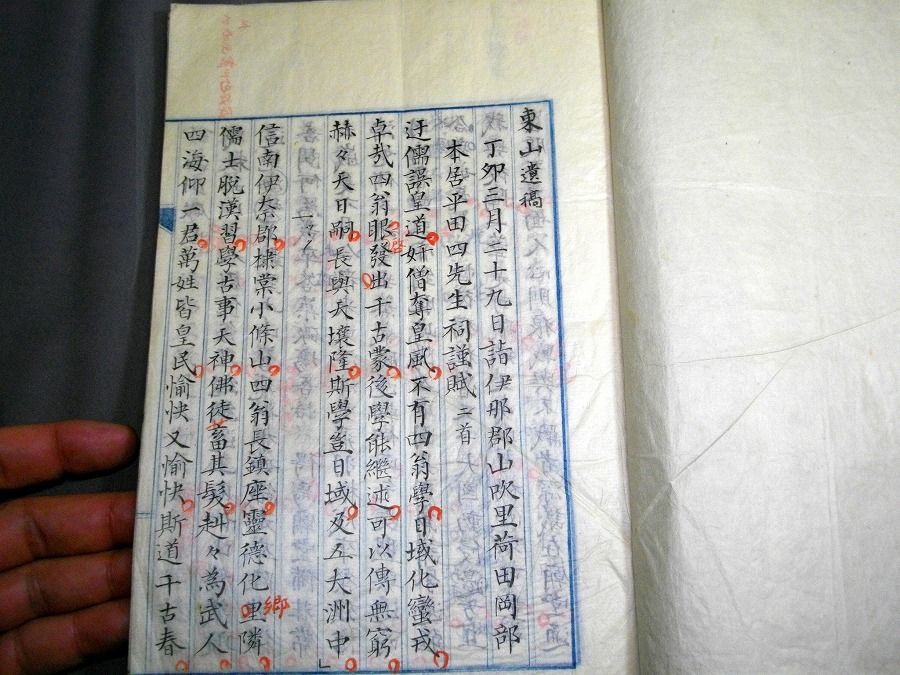 東山遺稿
丁卯三月二十九日詣伊那郡山吹里荷田岡部
本居平田四先生祠謹賦 二首
迂儒誤皇道奸僧奪皇風不有四翁學日域化蠻戎
卓哉四翁眼發出千古蒙後學能繼述可以傳無窮
啓
赫々天日嗣長與天壤隆斯學豈日域及五大洲中」
一々々
信南伊奈郡棣棠小條山四翁長鎮座靈德化里隣
鄉
儒士脫漢習學古事天神佛徒蓄其髮赳々為武人
四海仰一君萬姓皆皇民愉快又愉快斯道千古春